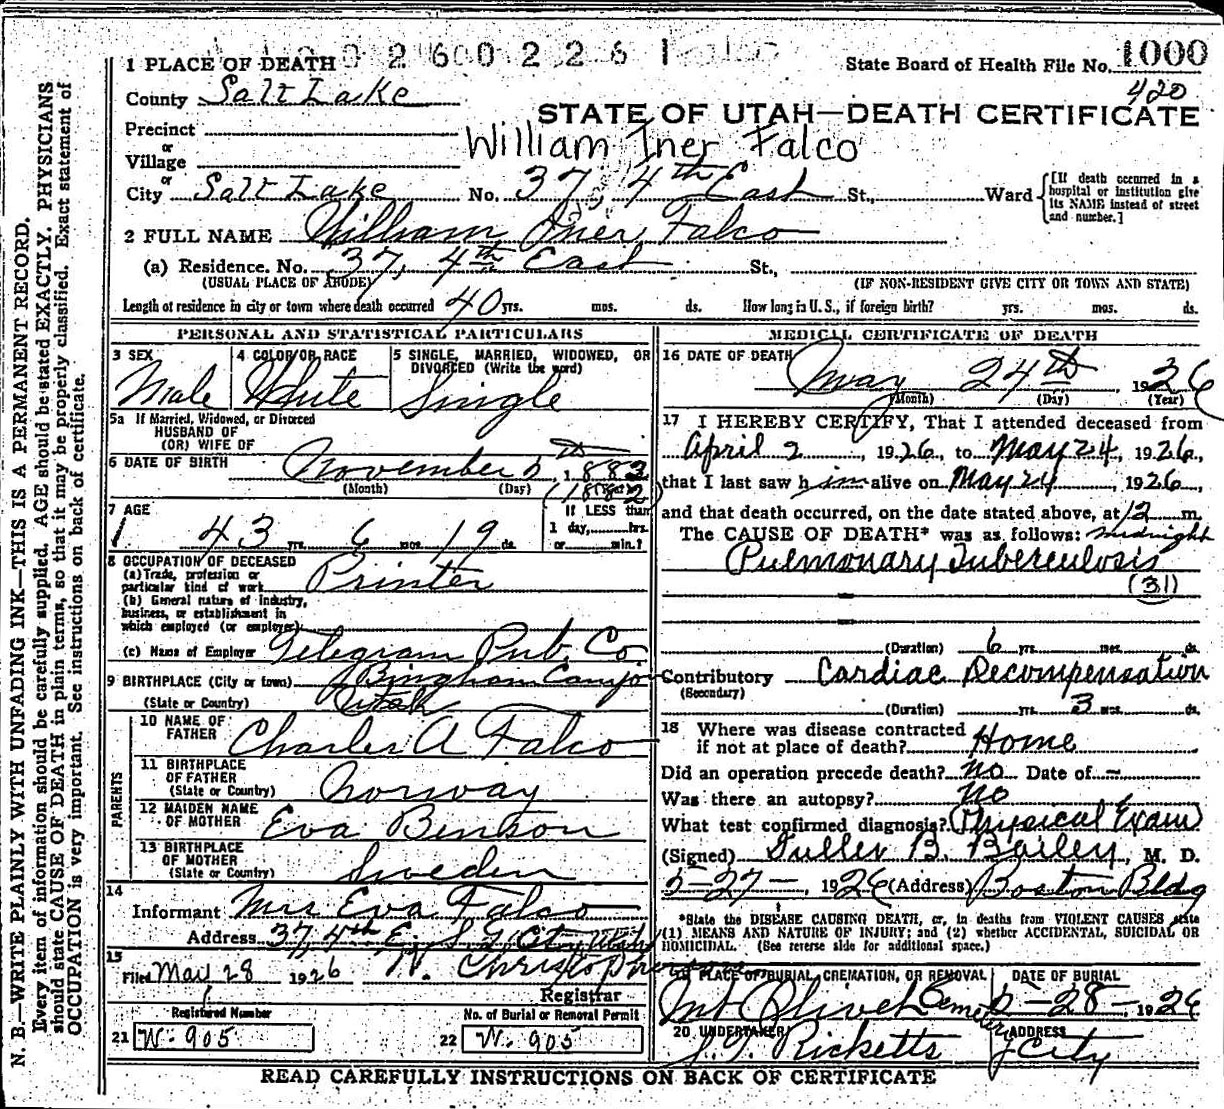 N. B.—WRITE PLAINLY WITH UNFADING INK—THIS IS A PERMANENT RECORD.
Every item of information should be carefully supplied. AGE should be stated EXACTLY. PHYSICIANS
should state CAUSE OF DEATH in plain terms, so that it may be properly classified. Exact statement of
OCCUPATION is very important. See instructions on back of certificate.
0 2 6 0 0 2 2 6 1
State Board of Health File No. 1000
420
1 PLACE OF DEATH
County Salt Lake
STATE OF UTAH—DEATH CERTIFICATE
Precinct
or
Village
William Iner Falco
or
City Salt Lake No. 37, 4th East St., Ward
[If death occurred in a
hospital or institution give
its NAME instead of street
and number.]
2 FULL NAME William Iner Falco
(a) Residence. No. 37, 4th East St.,
(USUAL PLACE OF ABODE) (IF NON-RESIDENT GIVE CITY OR TOWN AND STATE)
Length of residence in city or town where death occurred 40 yrs. mos. ds. How long in U. S., if foreign birth? yrs. mos. ds.
PERSONAL AND STATISTICAL PARTICULARS
3 SEX Male
4 COLOR OR RACE White
5 SINGLE, MARRIED, WIDOWED, OR
DIVORCED (Write the word)
Single
5a If Married, Widowed, or Divorced
HUSBAND OF
(OR) WIFE OF
6 DATE OF BIRTH November 5th, 1883
(Month) (Day) (Year)
(1882)
7 AGE
43 yrs. 6 mos. 19 ds.
If LESS than
1 day, hrs.
or min.?
8 OCCUPATION OF DECEASED
(a) Trade, profession or
particular kind of work Printer
(b) General nature of industry,
business, or establishment in
which employed (or employer)
(c) Name of Employer Telegram Pub Co
9 BIRTHPLACE (City or town) Bingham Canyon
(State or Country) Utah
PARENTS
10 NAME OF
FATHER Charles A Falco
11 BIRTHPLACE
OF FATHER
(State or Country) Norway
12 MAIDEN NAME
OF MOTHER Eva Benson
13 BIRTHPLACE
OF MOTHER
(State or Country) Sweden
14
Informant Mrs Eva Falco
Address 37, 4th E. S. L. City, Utah
15
Filed May 28 1926
Registrar
Registered Number
21 W-905
No. of Burial or Removal Permit
22 W-905
MEDICAL CERTIFICATE OF DEATH
16 DATE OF DEATH
May 24th, 1926
(Month) (Day) (Year)
17 I HEREBY CERTIFY, That I attended deceased from
April 2, 1926, to May 24, 1926,
that I last saw him alive on May 24, 1926,
and that death occurred, on the date stated above, at 12 m.
The CAUSE OF DEATH* was as follows: midnight
Pulmonary Tuberculosis
(31)
(Duration) 6 yrs. mos. ds.
Contributory Cardiac Decompensation
(Secondary)
(Duration) yrs. 3 mos. ds.
18 Where was disease contracted
if not at place of death? Home
Did an operation precede death? No Date of —
Was there an autopsy? No
What test confirmed diagnosis? Physical Exam
(Signed) Fuller B. Bailey, M. D.
5-27-, 1926 (Address) Boston Bldg
*State the DISEASE CAUSING DEATH, or, in deaths from VIOLENT CAUSES state
(1) MEANS AND NATURE OF INJURY; and (2) whether ACCIDENTAL, SUICIDAL OR
HOMICIDAL. (See reverse side for additional space.)
19 PLACE OF BURIAL, CREMATION, OR REMOVAL DATE OF BURIAL
Mt Olivet Cemetery 5-28-, 1926
20 UNDERTAKER ADDRESS
Ricketts City
READ CAREFULLY INSTRUCTIONS ON BACK OF CERTIFICATE